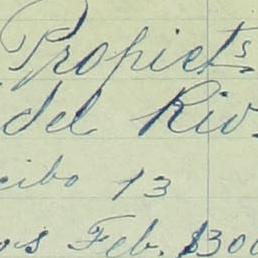 Propiets
del Rio.
cibo 13
os Feb. $300